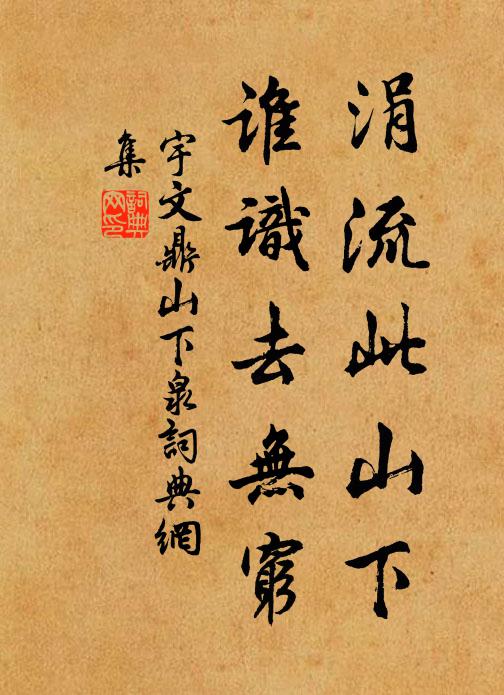 涓流此山下
誰識去無窮
宇文鼎山下泉詞典網
集
詞典
网印